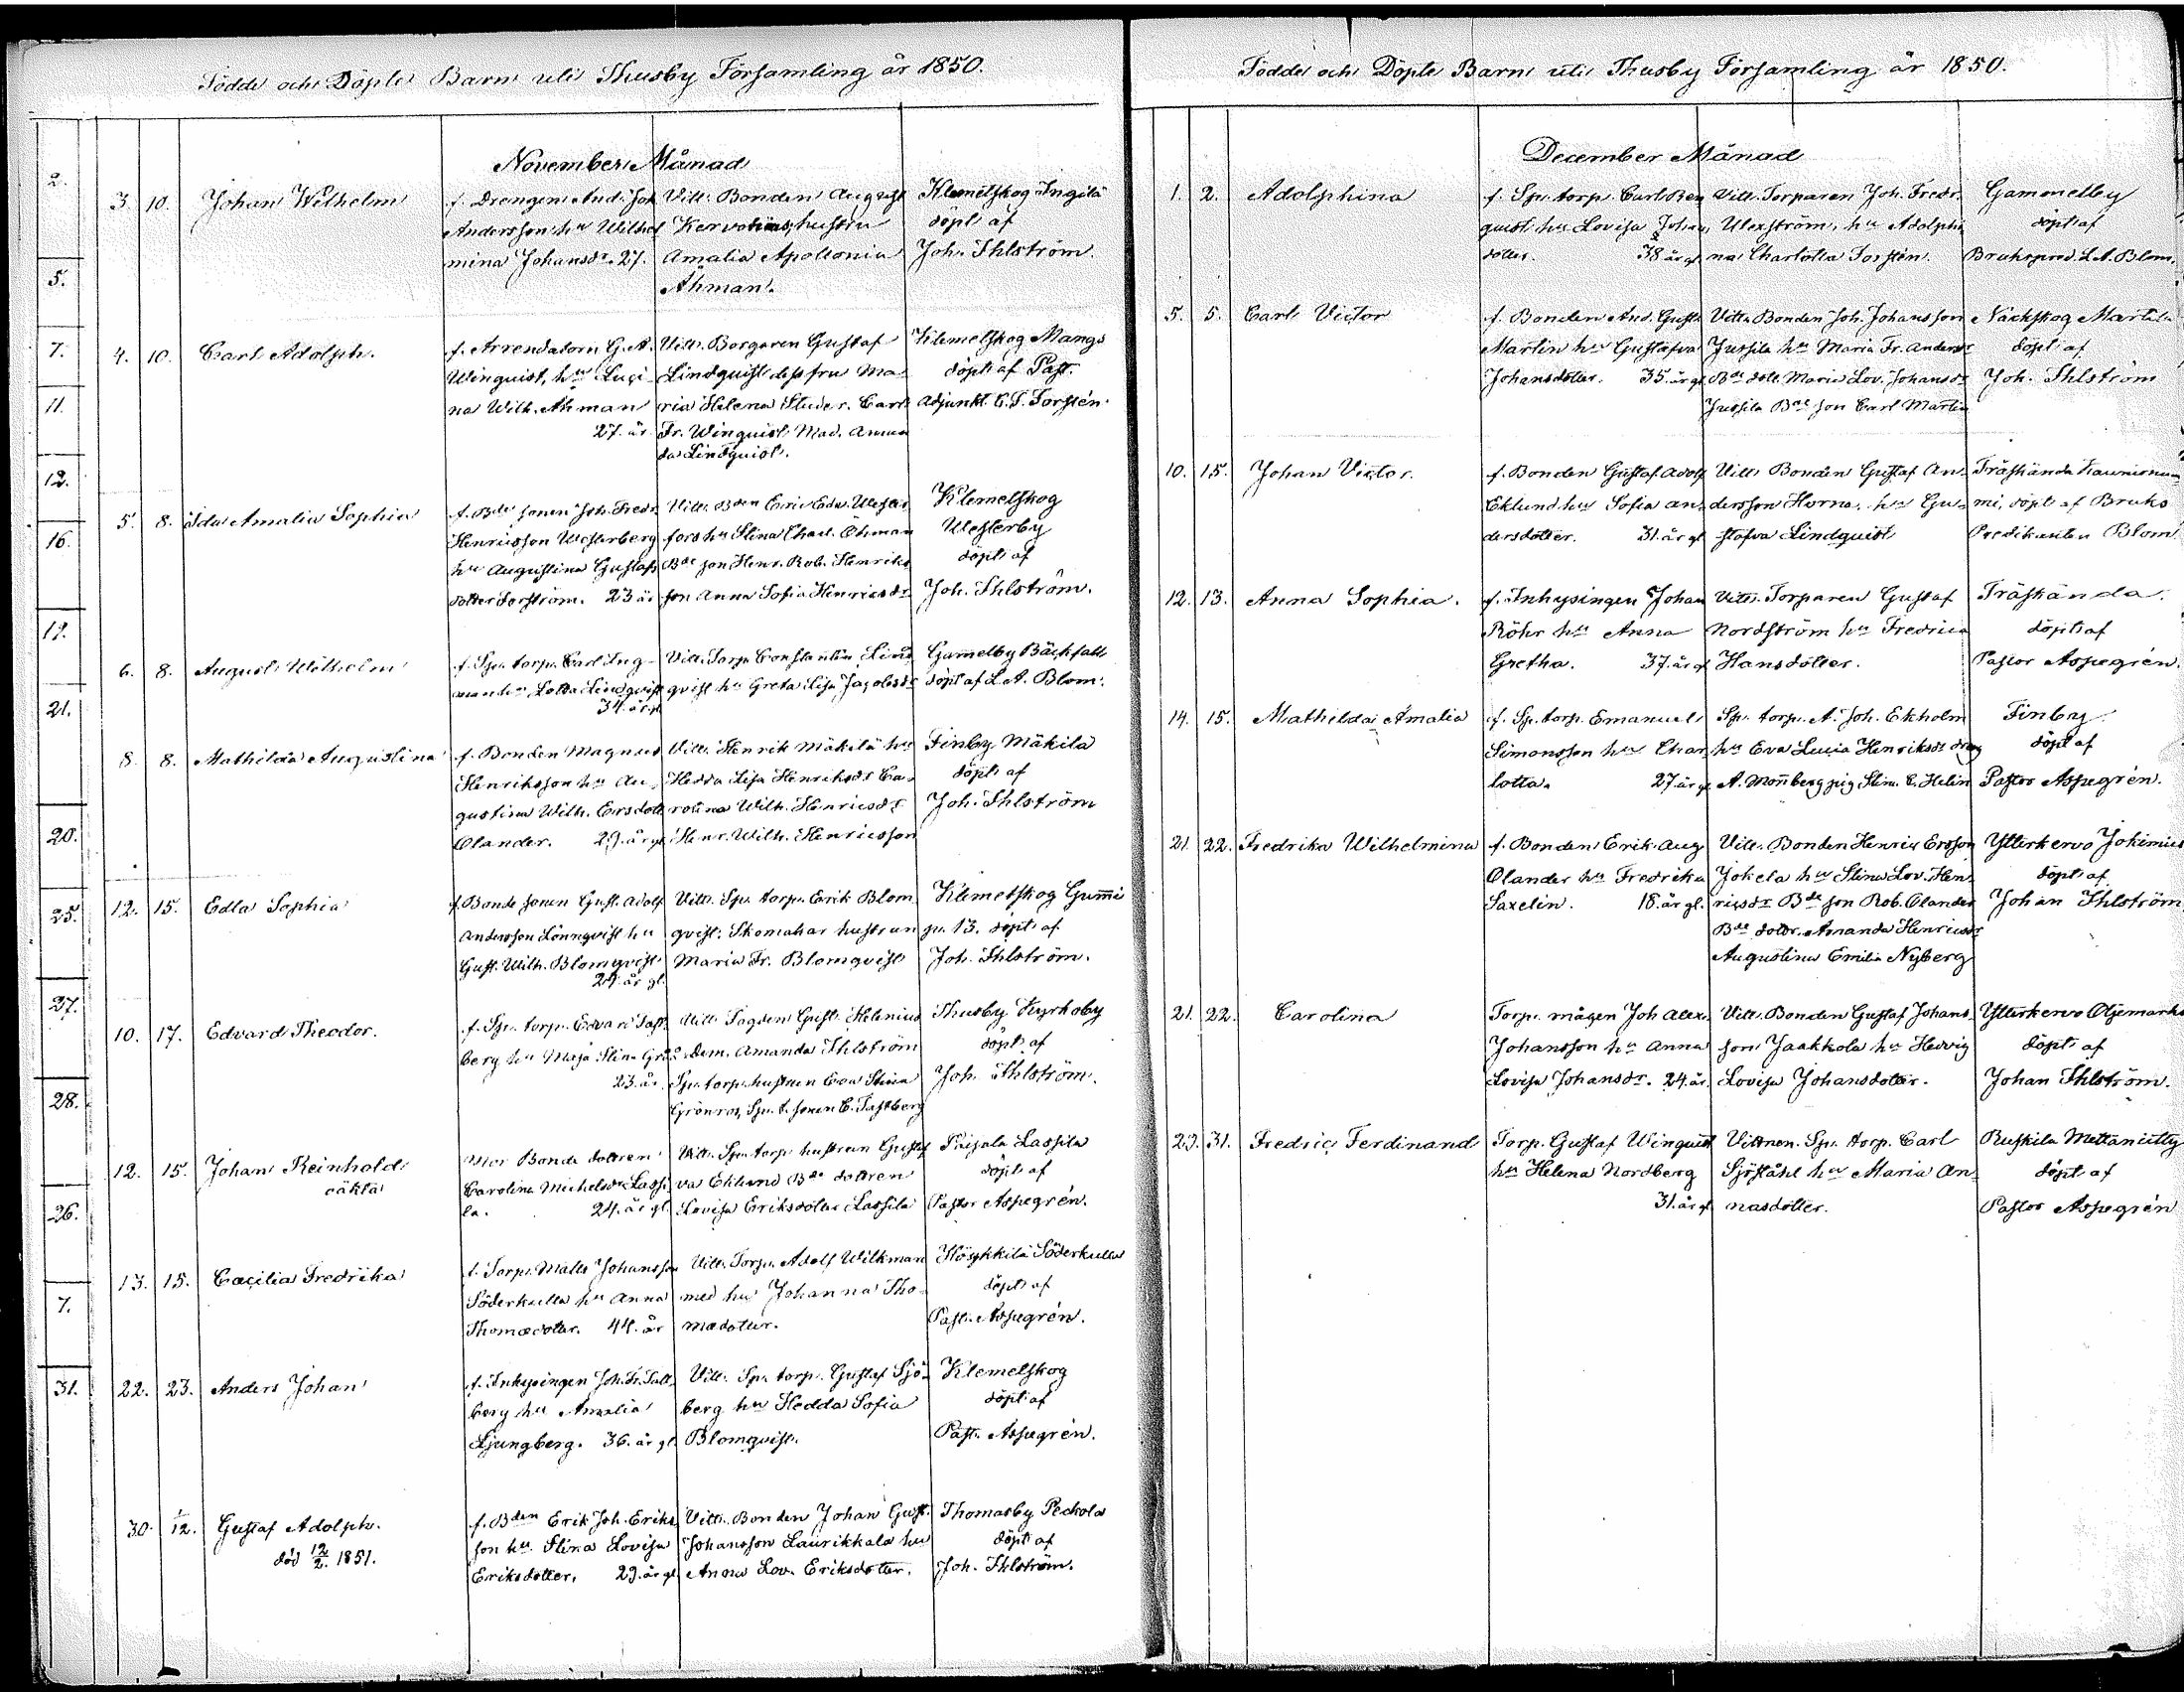 Födde och Döpte Barn uti Thusby Församling år 1850.
November Månad
2.
5.
7.
11.
12.
16.
19.
21.
20.
25.
27.
28.
26.
7.
31.
3. 10. Johan Wilhelm
f. Drengen And. Joh
Andersson hu Wilhel
mina Johansdr. 27.
Vittn. Bonden August
Kervo hustru
Amalia Apollonia
Åhman.
Klemetskog Ingilä
döpt af
Joh. Ihlström.
4. 10. Carl Adolph.
f. Arrendatorn G. A.
Winquist, hu Luci-
na Wilh. Åhman
27. år
Vittn. Borgaren Gustaf
Lindquist dess fru Ma-
ria Helena Studer. Carl
Fr. Winquist Mad. Aman
da Lindquist.
Klemetskog Mangs
döpt af Past.
Adjunkt. C. F. Forstén.
5. 8. Ida Amalia Sophia
f. Bde sonen Joh. Fredr.
Henricsson Westerberg
hu Augustina Gustafs
dotter Forström. 23 år
Vittn. Bden Eric Edv. Wester
fors hu Stina Charl. Öhman
Bde son Henr. Rob. Henriks
son Anna Sofia Henricsdr
Klemetskog
Westerby
döpt af
Joh. Ihlström.
6. 8. August Wilhelm
f. Spr. torp. Carl Ing-
man hu Lotta Lindqvist
34. år gl
Vittn. Torp. Constantin Lind
qvist hu Greta Lisa Jacobsdr
Gammelby Bäckfall
döpt af L. A. Blom.
8. 8. Mathilda Augustina
f. Bonden Magnus
Henriksson hu Au-
gustina Wilh. Ersdott
Olander. 29. år gl
Vittn. Henrik Mäkilä hu
Hedda Lisa Henriksdr Ca-
rolina Wilh. Henricsdr
Henr. Wilh. Henricsson
Finby Mäkila
döpt af
Joh. Ihlström
12. 15. Edla Sophia
f. Bonde sonen Gust. Adolf
Andersson Lönnqvist hu
Gust. Wilh. Blomqvist
24. år gl.
Vittn. Spr. torp. Erik Blom
qvist. Skomakar hustrun
Maria Fr. Blomqvist
Klemetskog Gummi
gr. 13. döpt af
Joh. Ihlström.
10. 17. Edvard Theodor.
f. Spr. torp. Edvard Tast
berg hu Maja Stina Grön
23. år.
Vittn. Fogden Gust. Helenius
Dem. Amanda Ihlström
Spr. torp. hustrun Eva Stina
Grönros, Spr. t. sonen C. Tastberg
Thusby Kyrkoby
döpt af
Joh. Ihlström.
12. 15. Johan Reinhold
oäkta
Mor Bonde dottren
Carolina Michelsdr Lassi
la. 24. år gl.
Vittn. Spr. torp hustrun Gustaf
va Eklund Bde dottren
Lovisa Eriksdotter Lassila
Paijala Lassila
döpt af
Pastor Aspegrén.
13. 15. Cæcilia Fredrika
f. Torp. Matts Johansson
Söderkulla hu Anna
Thomædotter. 44. år
Vittn. Torp. Adolf Wilkman
med hu Johanna Tho-
mædotter.
Höykkilä Söderkulla
döpt af
Past. Aspegrén.
22. 23. Anders Johan
f. Inhysingen Joh. Fr. Sall
berg hu Amalia
Ljungberg. 36. år gl.
Vittn. Spr. torp. Gustaf Sjö-
berg hu Hedda Sofia
Blomqvist.
Klemetskog
döpt af
Past. Aspegrén.
30. 1/12. Gustaf Adolph.
död 12/2. 1851.
f. Bden Erik Joh. Eriks
son hu Stina Lovisa
Eriksdotter. 29. år gl
Vittn. Bonden Johan Gust.
Johansson Laurikkala hu
Anna Lov. Eriksdotter.
Thomasby Peckola
döpt af
Joh. Ihlström.
Födde och Döpte Barn uti Thusby Församling år 1850.
December Månad
1. 2. Adolphina
f. Spr. torp. Carl Berg
quist hu Lovisa Johans
dotter. 38 år gl
Vittn. Torparen Joh. Fredr.
Ulenström, hu Adolphi
na Charlotta Forstén.
Gammelby
döpt af
Brukspred. L. A. Blom.
5. 5. Carl Victor
f. Bonden And. Gustf.
Martin hu Gustafva
Johansdotter. 35. år gl
Vittn. Bonden Joh. Johansson
Jussila hu Maria Fr. Andersr
Bde dott. Maria Lov. Johansdr
Jussila Bde son Carl Martin
Näckskog Martila
döpt af
Joh. Ihlström
10. 15. Johan Victor.
f. Bonden Gustaf Adolf
Eklund hu Sofia An-
dersdotter. 31. år gl
Vittn. Bonden Gustaf An-
dersson Horna, hu Gu-
stafva Lindquist
Träskända
mi, döpt af Bruks
Predikanten Blom
12. 13. Anna Sophia.
f. Inhysingen Johan
Röhr hu Anna
Gretha. 37. år gl
Vittn. Torparen Gustaf
Nordström hu Fredrica
Hansdotter.
Träskända.
döpt af
Pastor Aspegrén.
14. 15. Mathilda Amalia
f. Sp. torp. Emanuel
Simonsson hu Char
lotta. 27. år gl
Spr. torp. A. Joh. Ekholm
hu Eva Lucia Henriksdr dreng
A. Monnberg pig Stin. C. Helin
Finby
döpt af
Pastor Aspegrén.
21. 22. Fredrika Wilhelmina
f. Bonden Erik Aug
Olander hu Fredrika
Saxelin. 18. år gl.
Vittn. Bonden Henric Ersson
Jokela hu Stina Lov. Hen-
ricsdr Bde son Rob. Olander
Bde dottr. Amanda Henricsdr
Augustina Emilia Nyberg
Ytterkervo Jokimies
döpt af
Johan Ihlström
21. 22. Carolina
Torp. mågen Joh Alex.
Johansson hu Anna
Lovisa Johansdr. 24. år
Vittn. Bonden Gustaf Johans
son Jaakkola hu Hedvig
Lovisa Johansdotter.
Ytterkervo Oljemarks
döpt af
Johan Ihlström.
29. 31. Fredric Ferdinand
Torp. Gustaf Winquist
hu Helena Nordberg
31. år gl
Vittnen. Spr. torp. Carl
Sjöståhl hu Maria An-
nasdotter.
Ruskila Mettäniitty
döpt af
Pastor Aspegrén